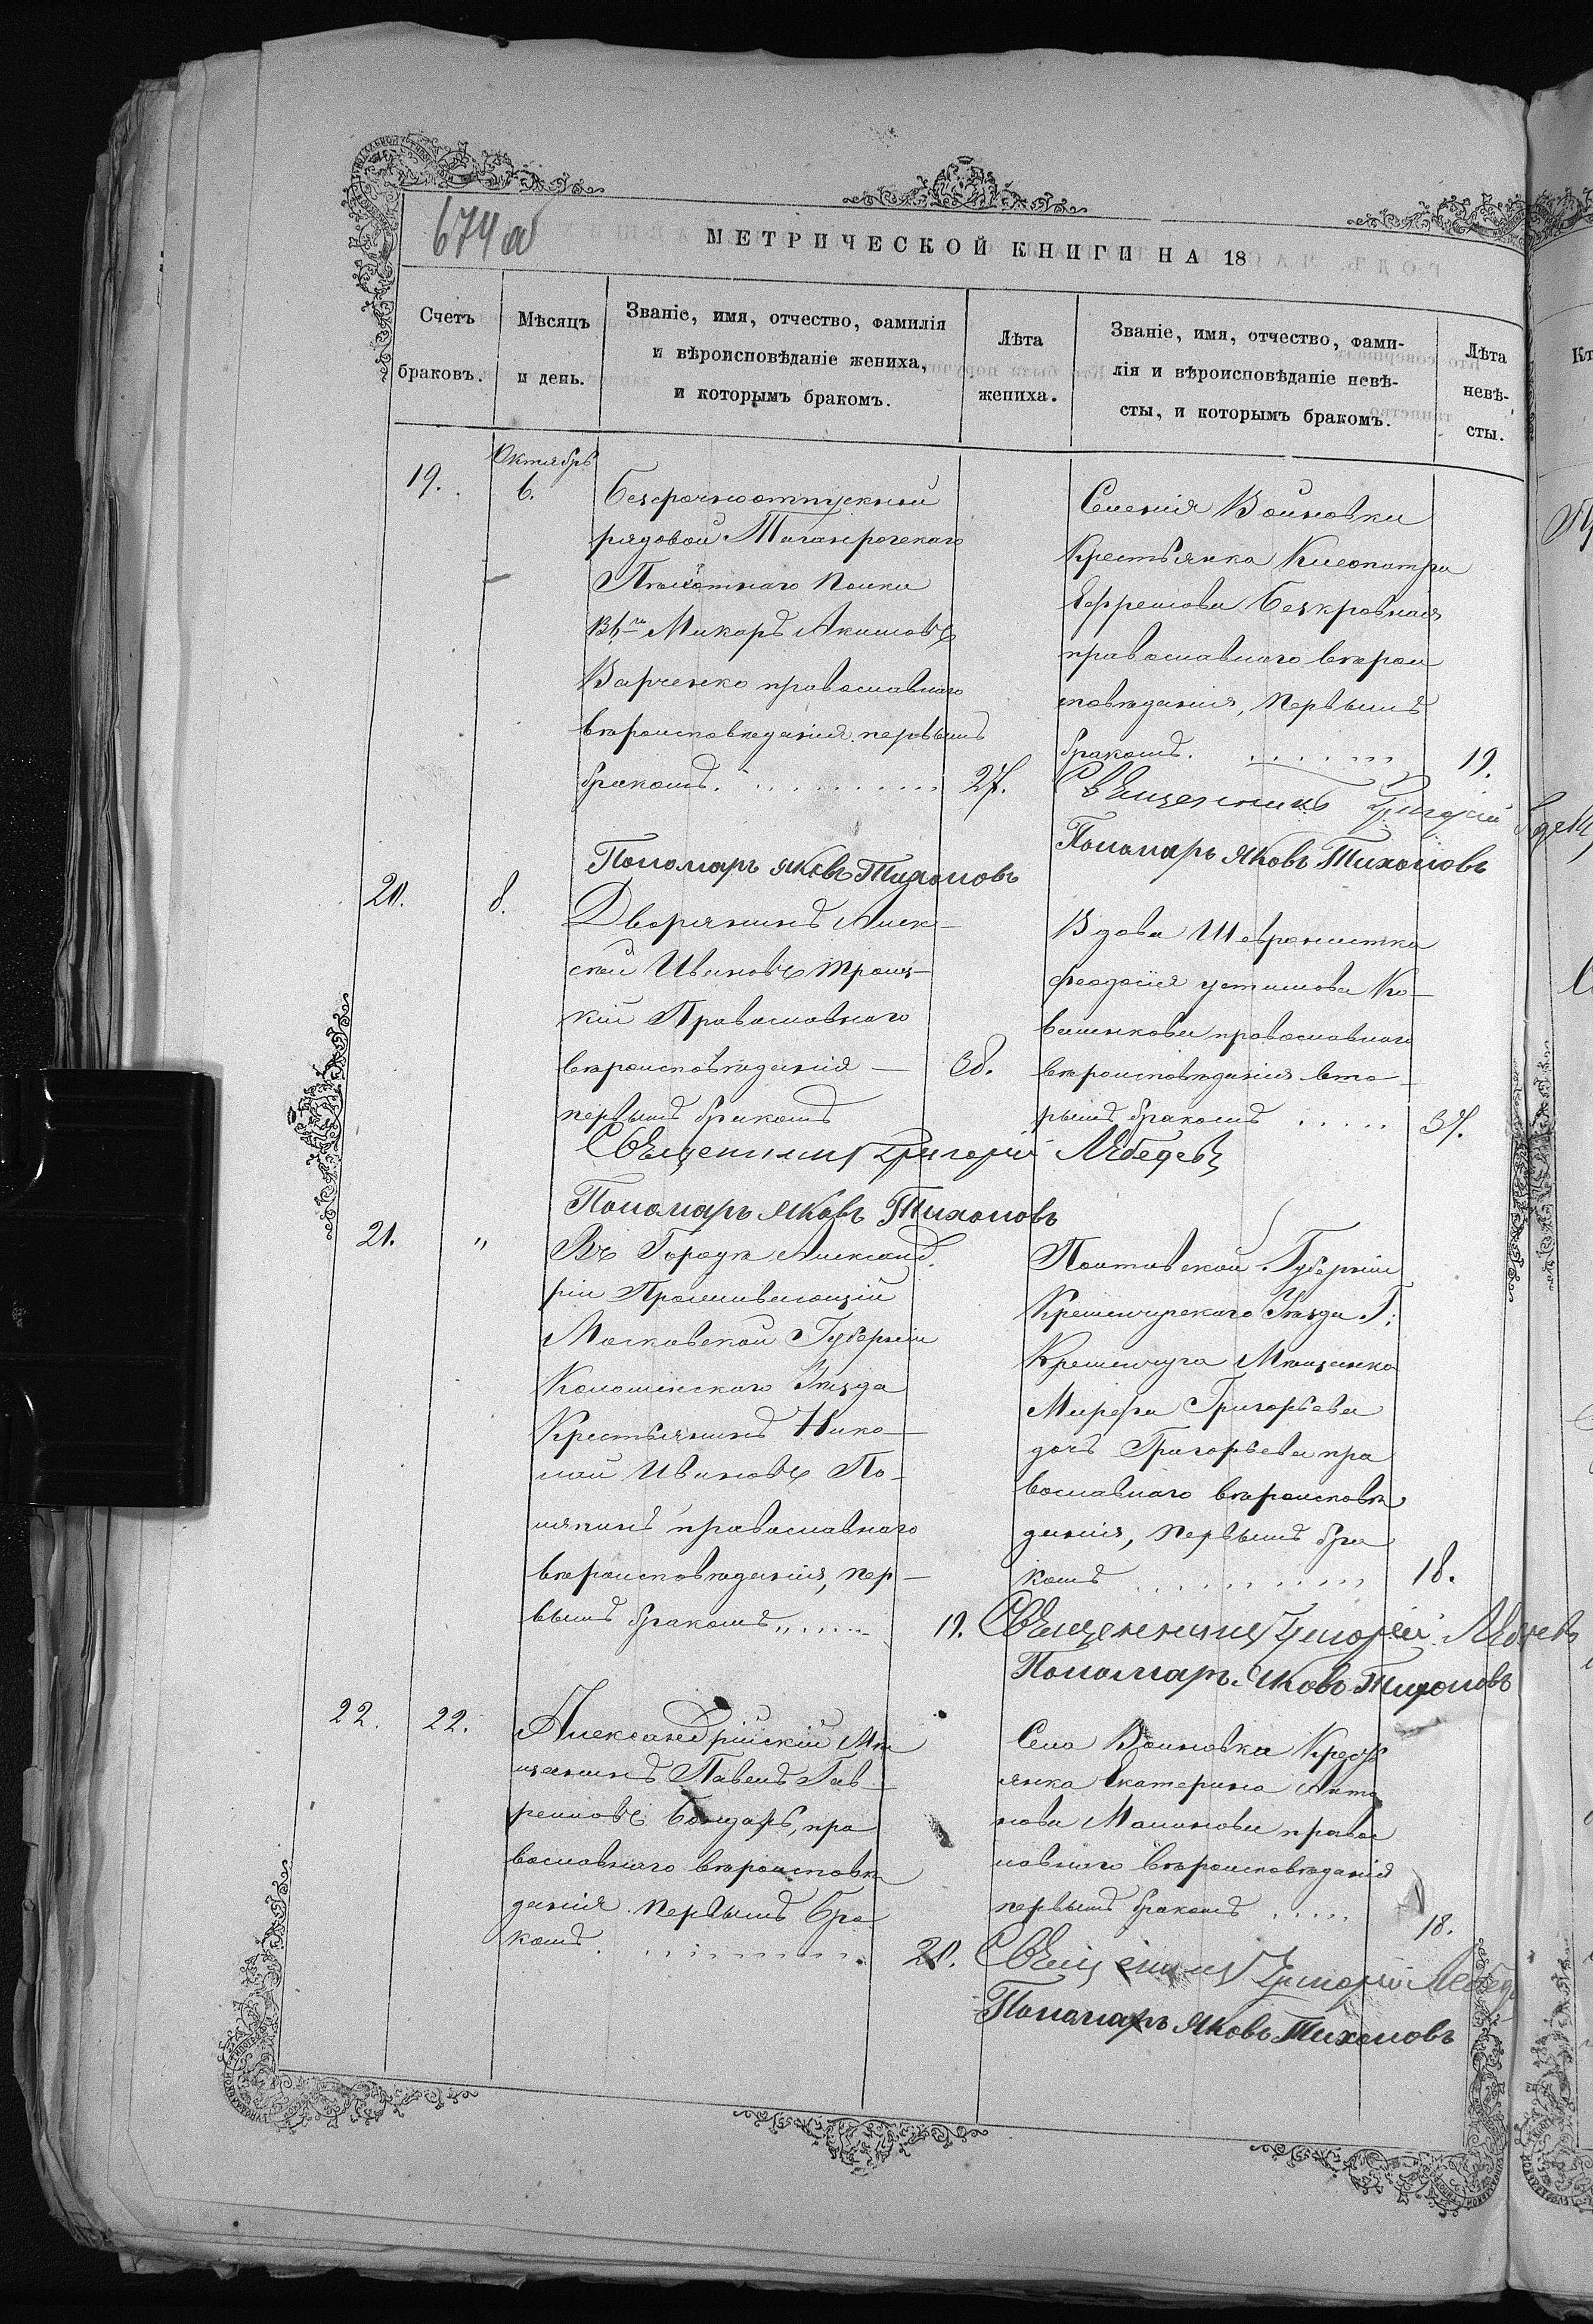 674 об
МЕТРИЧЕСКОЙ КНИГИ НА 18
Счетъ
браковъ.
Мѣсяцъ
и день.
Званіе, имя, отчество, фамилія
и вѣроисповѣданіе жениха,
и которымъ бракомъ.
Лѣта
жениха.
Званіе, имя, отчество, фами-
лія и вѣроисповѣданіе невѣ-
сты, и которымъ бракомъ.
Лѣта
невѣ-
сты.
19.
Октябрь
6.
Безсрочноотпускный
рядовой Таганрогскаго
Пѣхотнаго Полка
Макаръ Акимовъ
Варченко православнаго
вѣроисповѣданія первымъ
бракомъ. . . . . . . . . . .
27.
Селенія Войновки
Крестьянка Клеопатра
Ефремова Безкровная
православнаго вѣрои
сповѣданія, первымъ
бракомъ. . . . . . . .
19.
Священникъ Григорій
Пономарь Яковъ Тихоновъ
Пономарь Яковъ Тихоновъ
20.
8.
Дворянинъ Алек-
сѣй Ивановъ Троиц-
кій Православнаго
вѣроисповѣданія —
первымъ бракомъ
38.
Вдова Шевронистка
Феодосія Устимова Ко-
валенкова православнаго
вѣроисповѣданія вто-
рымъ бракомъ . . . . .
37.
Священникъ Григорій Лебедевъ
Пономарь Яковъ Тихоновъ
21.
"
Въ Городѣ Александ.
ріи Проживающій
Московской Губерніи
Коломенскаго Уѣзда
Крестьянинъ Нико-
лай Ивановъ По-
лякинъ православнаго
вѣроисповѣданія, пер-
вымъ бракомъ . . . . .
19.
Полтавской Губерніи
Кременчугскаго Уѣзда Г.
Кременчуга Мѣщанка
Марфа Григорьева
дочь Григорьева пра
вославнаго вѣроисповѣ
данія, первымъ бра
комъ . . . . . . . . . .
18.
Священникъ Григорій Лебедевъ
Пономарь Яковъ Тихоновъ
22.
22.
Александрійскій Мѣ
щанинъ Павелъ Гав-
риловъ Бондарь, пра
вославнаго вѣроисповѣ
данія первымъ бра
комъ. . . . . . . . . .
20.
Села Войновки Кресть
янка Екатерина Анто
нова Малинова правос
лавнаго вѣроисповѣданія
первымъ бракомъ . . . . .
18.
Священникъ Григорій Лебеде
Пономарь Яковъ Тихоновъ